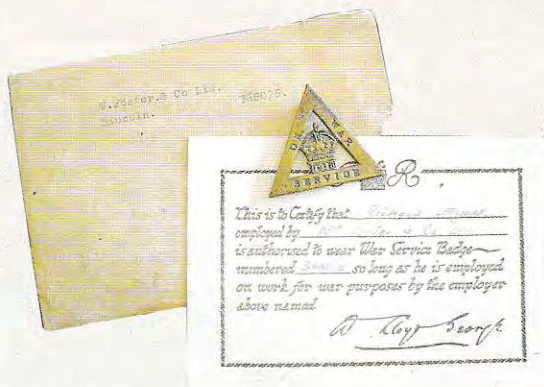 W. Foster. & Co Ltd.
Lincoln.
ON WAR
SERVICE
1916
R
This is to Certify that Richard
employed by
is authorised to wear War Service Badge
numbered so long as he is employed
on work for war purposes by the employer
above named
D Lloyd George